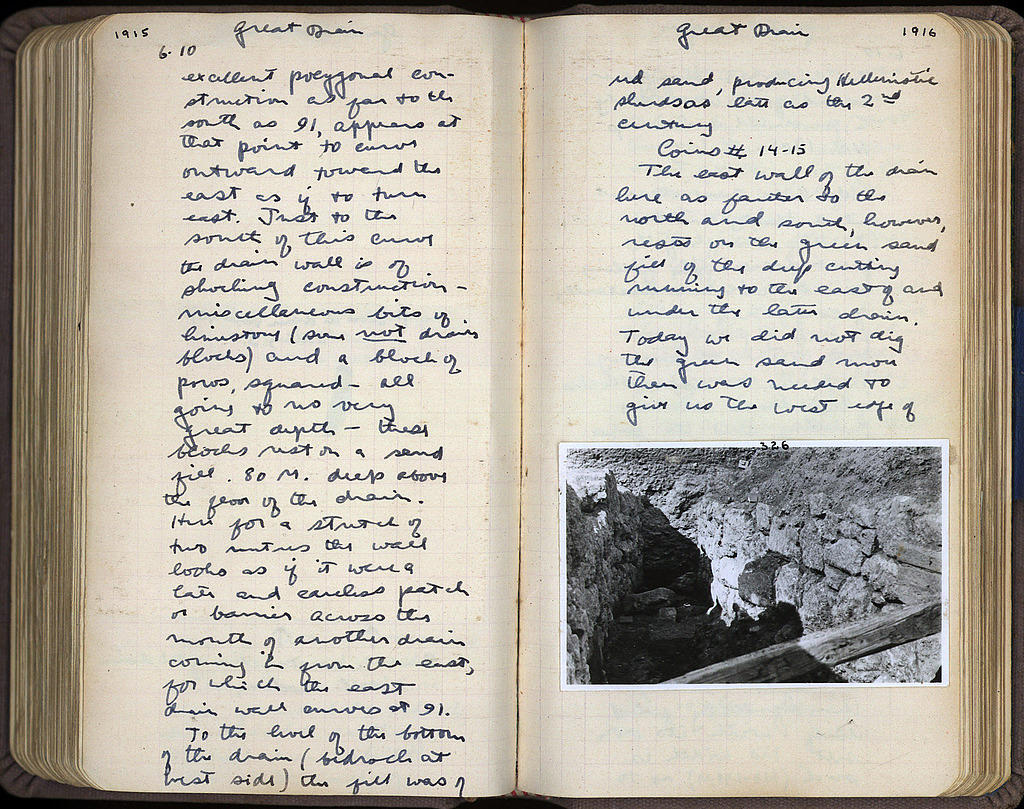 1915
Great Drain
6·10
excellent polygonal con-
struction as far to the
south as 91, appears at
that point to curve
outward toward the
east as if to turn
east. Just to the
south of this curve
the drain wall is of
shocking construction –
miscellaneous bits of
limestone (some not drain
blocks) and a block of
poros, squared – all
going to no very
great depth – these
blocks rest on a sand
fill .80 M. deep above
the floor of the drain.
Here for a stretch of
two metres the wall
looks as if it were a
late and careless patch
or barrier across the
mouth of another drain
coming in from the east,
for which the east
drain wall curves at 91.
To the level of the bottom
of the drain (bedrock at
west side) the fill was of
Great Drain
1916
red sand, producing Hellenistic
sherds as late as the 2nd
century
Coins # 14-15
The east wall of the drain
here as farther to the
north and south, however,
rests on the green sand
fill of the deep cutting
running to the east of and
under the later drain.
Today we did not dig
the green sand more
than was needed to
give us the west edge of
326